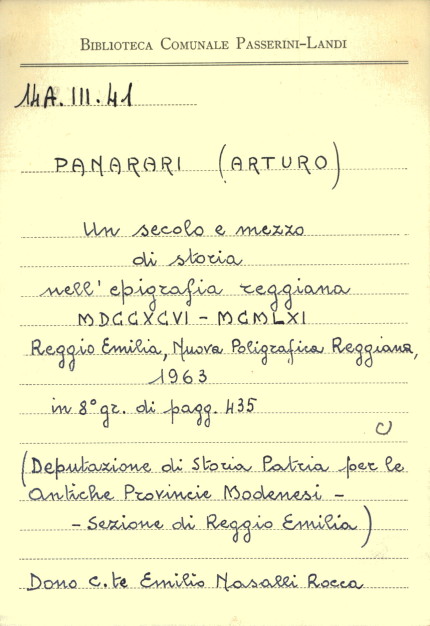 BIBLIOTECA COMUNALE PASSERINI-LANDI
14A. III. 41
PANARARI (ARTURO)
Un secolo e mezzo
di storia
nell'epigrafia reggiana
MDCCXCVI - MCMLXI
Reggio Emilia, Nuova Poligrafica Reggiana,
1963
in 8° gr. di pagg. 435
(Deputazione di Storia Patria per le
Antiche Provincie Modenesi -
- Sezione di Reggio Emilia)
Dono C.te Emilio Nasalli Rocca